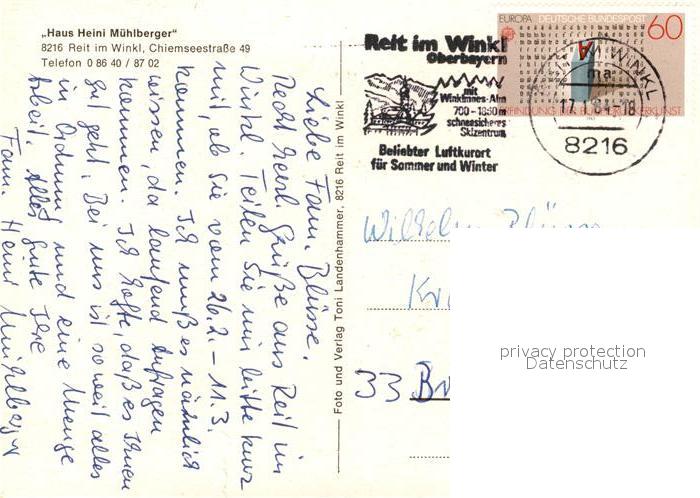 „Haus Heini Mühlberger“
8216 Reit im Winkl, Chiemseestraße 49
Telefon 0 86 40 / 87 02
Liebe Fam. Blüsse.
Recht herzl. Grüße aus Reit im
Winkl. Teilen Sie mir bitte kurz
mit, ob Sie vom 26.2. – 11.3.
kommen. Ich muß es nämlich
wissen, da laufend Anfragen
kommen. Ich hoffe, daß es Ihnen
gut geht. Bei uns ist soweit alles
in Ordnung und eine Menge
Arbeit. Alles Gute Ihre
Fam. Heini Mühlberger
Foto und Verlag Toni Landenhammer, 8216 Reit im Winkl
Reit im Winkl
Oberbayern
mit
Winklmoos-Alm
700-1850m
schneesicheres
Skizentrum
Beliebter Luftkurort
für Sommer und Winter
EUROPA DEUTSCHE BUNDESPOST
60
A
ERFINDUNG DER BUCHDRUCKERKUNST
WINKL
ma
84-18
8216
Wilhelm
33
privacy protection
Datenschutz